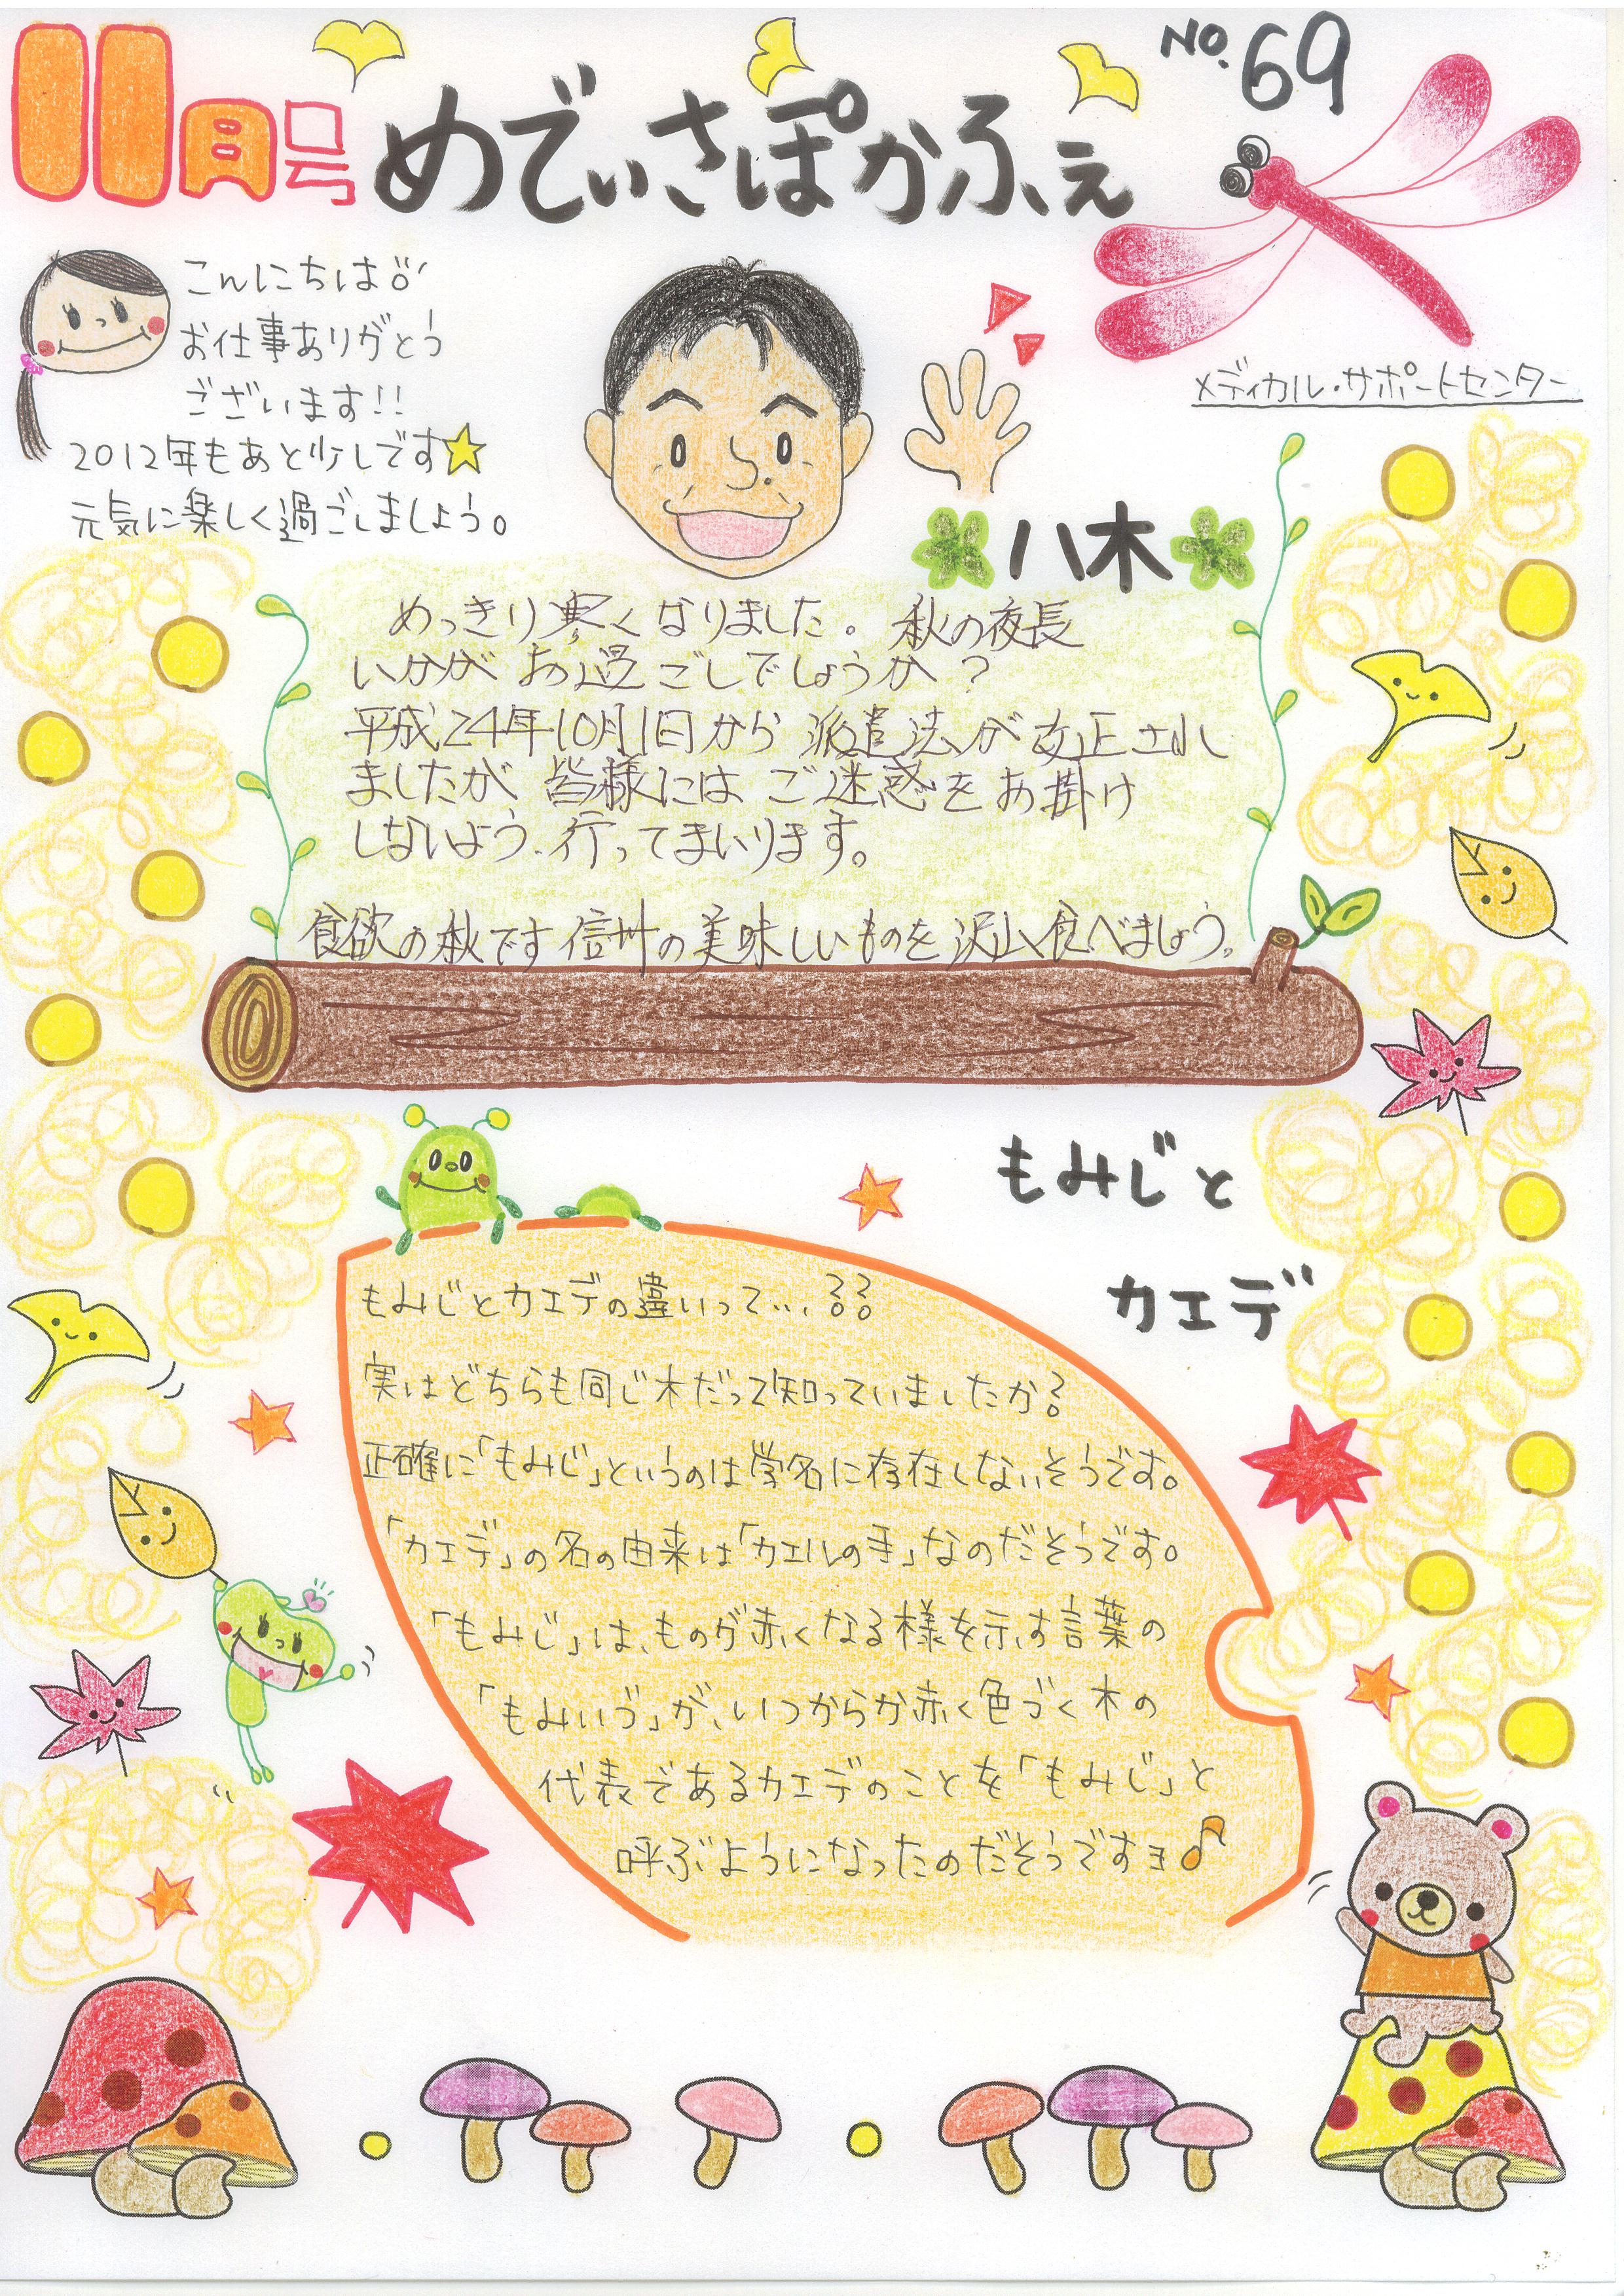 11月号
めでぃさぽかふぇ
NO.69
メディカル・サポートセンター
こんにちは!!
お仕事ありがとう
ございます!!
2012年もあと少しです
元気に楽しく過ごしましょう。
八木
めっきり寒くなりました。秋の夜長
いかがお過ごしでしょうか？
平成24年10月1日から派遣法が改正され
ましたが皆様にはご迷惑をお掛け
しないよう、行ってまいります。
食欲の秋です信州の美味しいものを沢山食べましょう。
もみじと
カエデ
もみじとカエデの違いって…??
実はどちらも同じ木だって知っていましたか?
正確に「もみじ」というのは学名に存在しないそうです。
「カエデ」の名の由来は「カエルの手」なのだそうです。
「もみじ」は、ものが赤くなる様を示す言葉の
「もみいづ」が、いつからか赤く色づく木の
代表であるカエデのことを「もみじ」と
呼ぶようになったのだそうですヨ♪